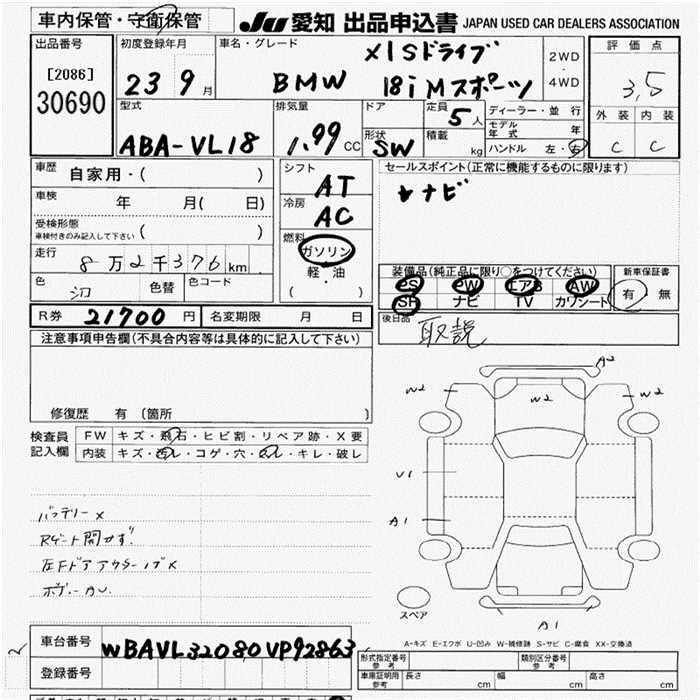 車内保管・守衛保管
JU 愛知 出品申込書 JAPAN USED CAR DEALERS ASSOCIATION
出品番号
[2086]
30690
初度登録年月
23 9月
車名・グレード
X1Sドライブ
BMW 18i Mスポーツ
2WD
・
4WD
評価点
3,5
外装 内装
C C
型式
ABA-VL18
排気量
1.99 CC
ドア
形状
SW
定員
5人
積載
kg
ディーラー・並行
モデル年式 年
ハンドル 左・右
車歴
自家用・( )
車検
年 月( 日)
受検形態
車検付きのみ記入して下さい ( )
走行
8万2千376km
色
色替
色コード
シフト
AT
冷房
AC
燃料
ガソリン
軽・油
( )
セールスポイント(正常に機能するものに限ります)
ナビ
装備品(純正品に限り〇をつけてください)
PS PW エアB AW
SR ナビ TV カワシート
新車保証書
有 無
後日品
取説
R券 21700円
名変期限 月 日
注意事項申告欄(不具合内容等は具体的に記入して下さい)
修復歴 有 〔箇所 〕
検査員
記入欄
FW キズ・飛石・ヒビ割・リペア跡・X要
内装 キズ・汚レ・コゲ・穴・スレ・キレ・破レ
バッテリーX
Rゲート開かず!
左FドアアウターノブX
ボデーAU
A2
W2
W2
W2
U1
A1
A1
スペア
A-キズ E-エクボ U-凹み W-補修跡 S-サビ C-腐食 XX-交換済
車台番号
WBAVL32080VP92863
登録番号
形式指定番号
参考
類別区分番号
参考
車庫証明用
参考
長さ cm
幅 cm
高さ cm